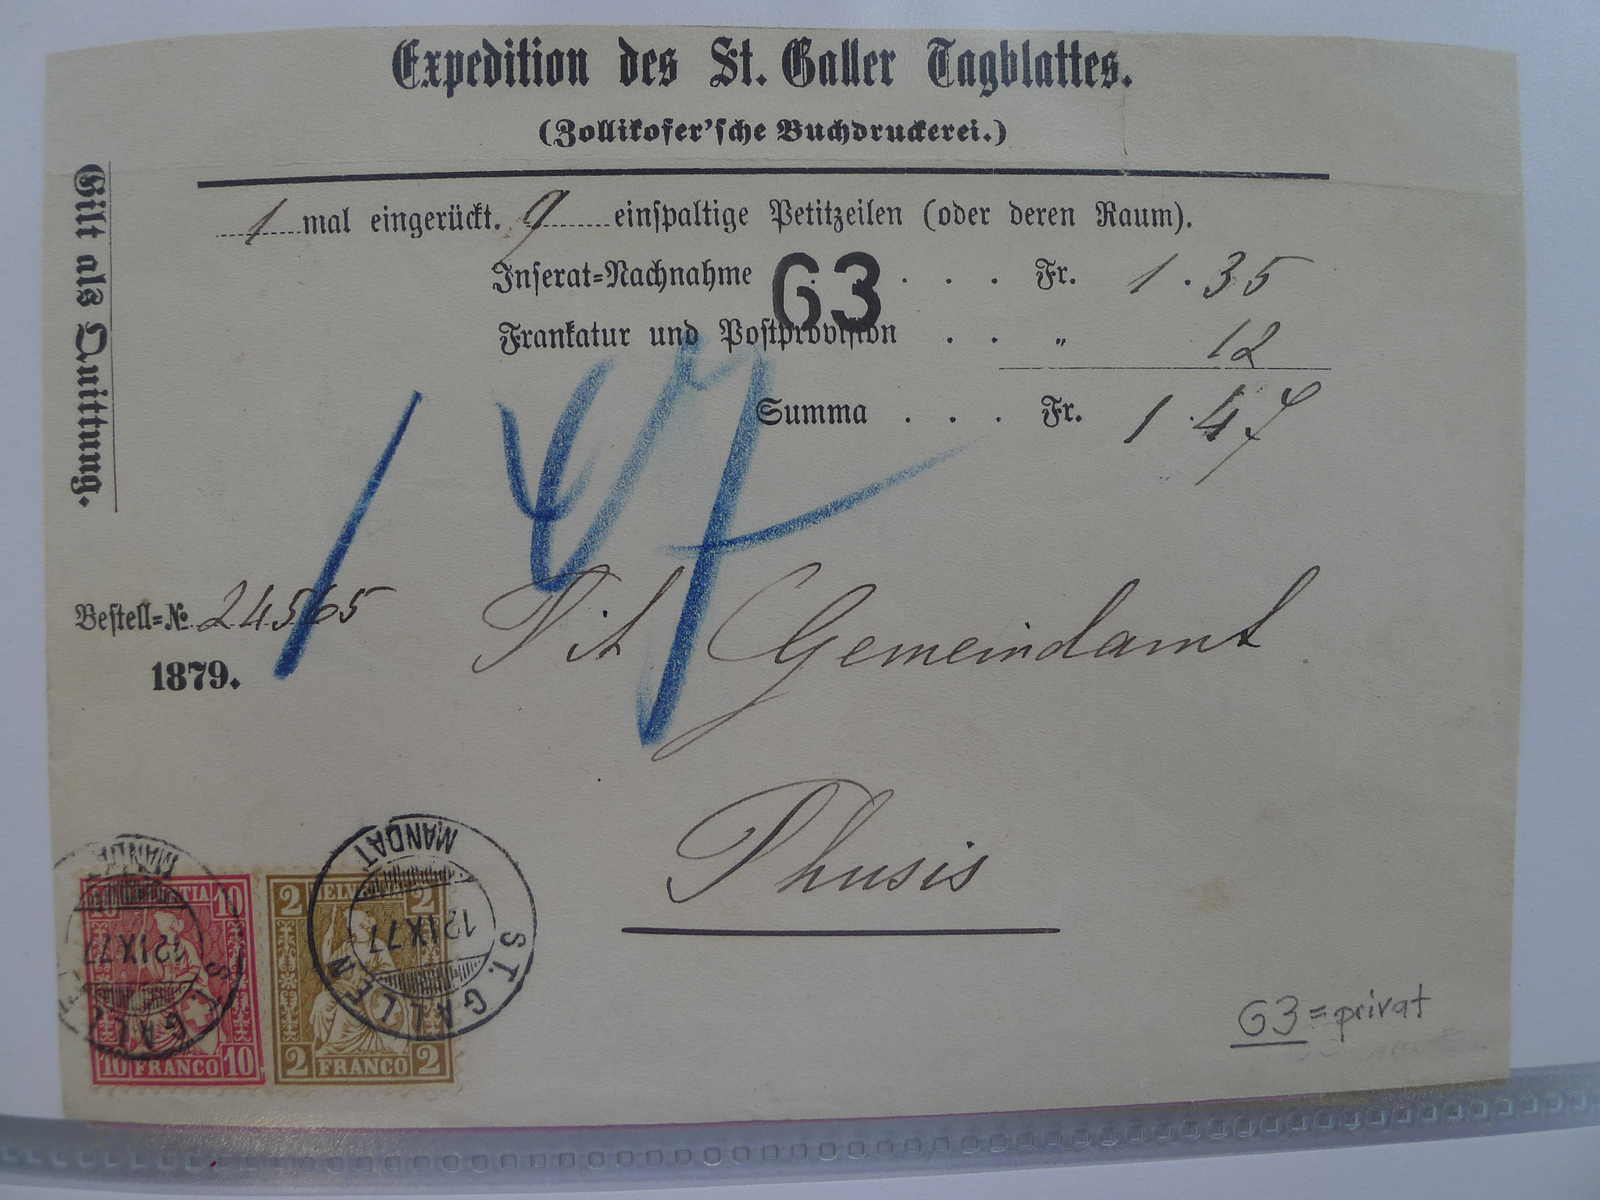 Expedition des St. Galler Tagblattes.
(Zollikofer'sche Buchdruckerei.)
Gilt als Quittung.
1 mal eingerückt. 9 einspaltige Petitzeilen (oder deren Raum).
Inserat=Nachnahme . . . . Fr. 1.35
G3
Frankatur und Postprovision . . " 12
Summa . . . Fr. 1.47
1 47
Bestell=№ 24565
1879.
Tit Gemeindamt
Thusis
MANDAT
12 IX 77
ST. GALLEN
MANDAT
12 IX 77
ST. GALLEN
10 HELVETIA 10
10 FRANCO 10
2 HELVETIA 2
2 FRANCO 2
G3 = privat